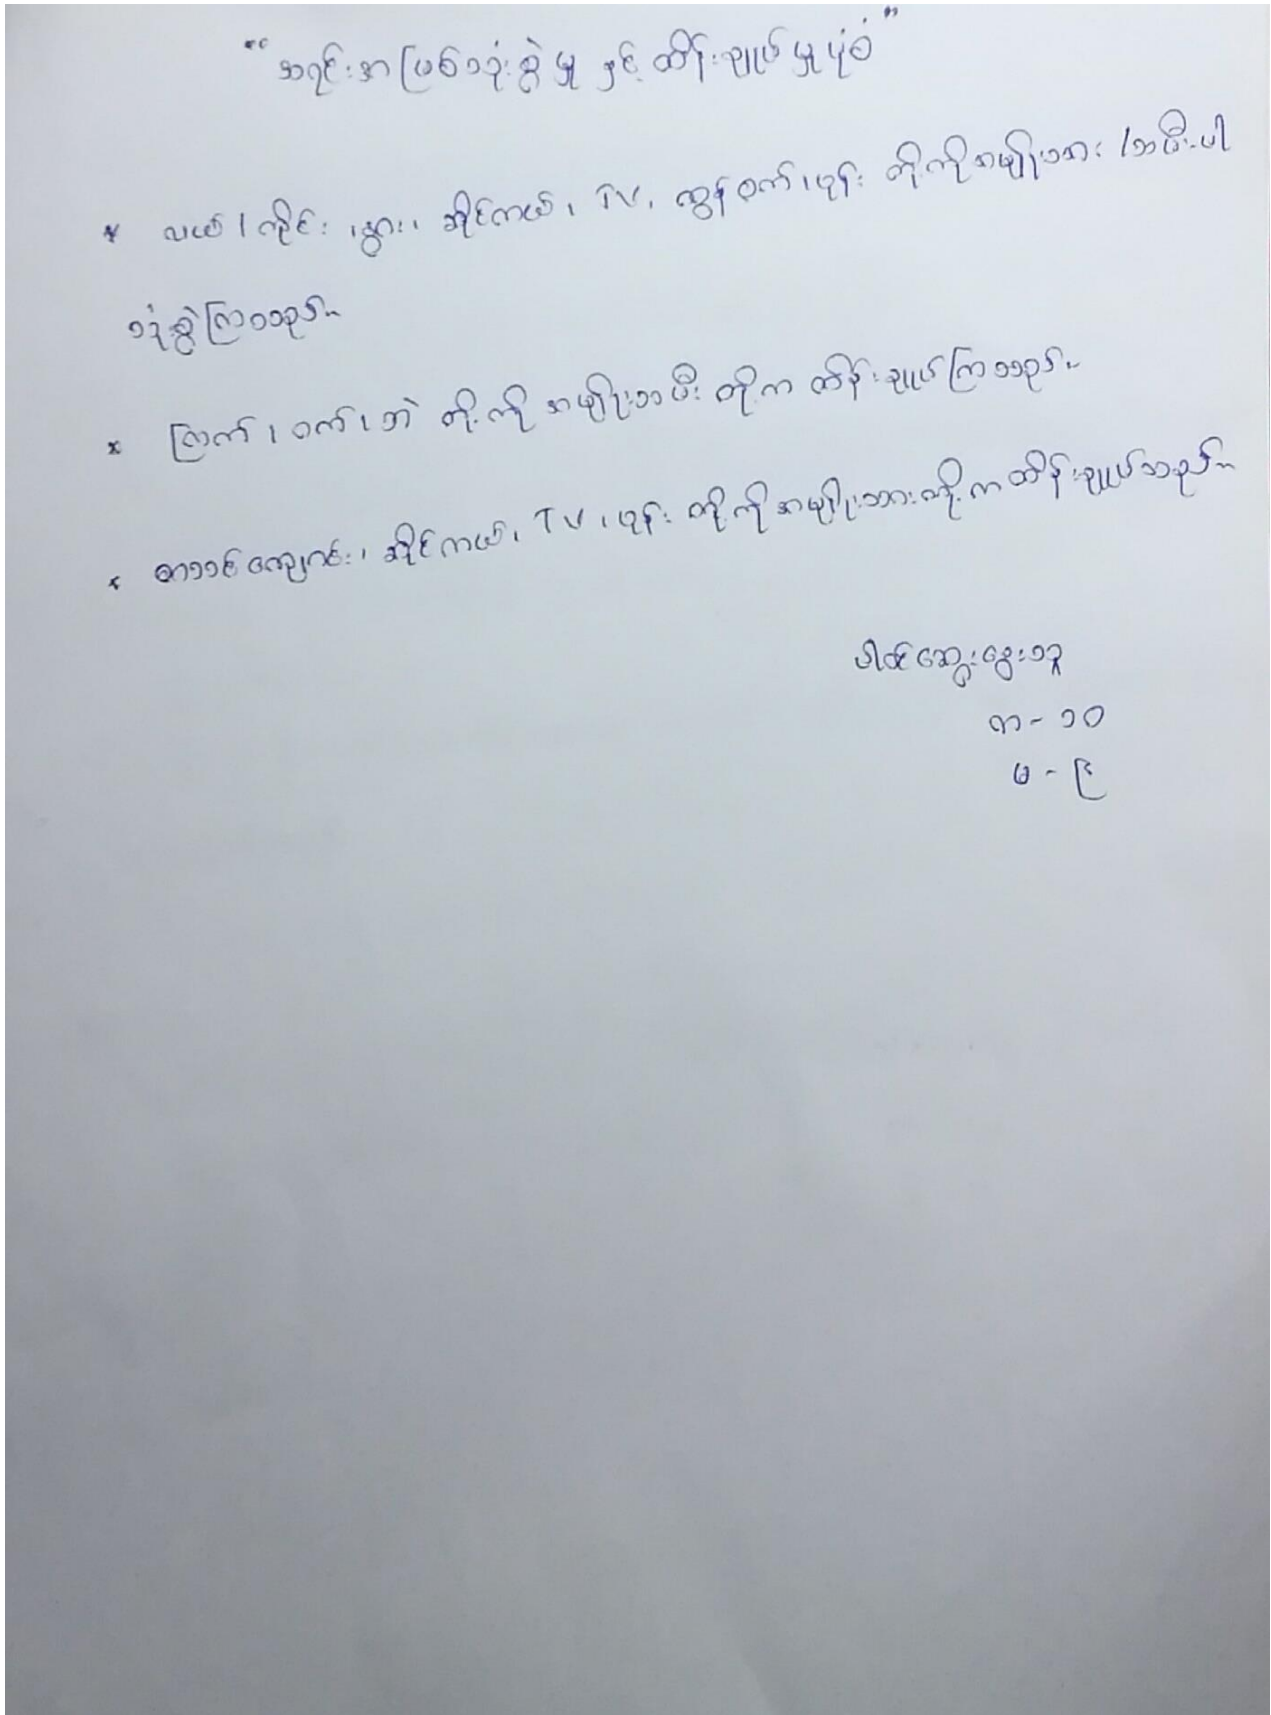 "အရင်းအမြစ်သုံးစွဲမှု နှင့် ထိန်းချုပ်မှုပုံစံ"
* လယ်၊ ကိုင်း၊ နွား၊ ဆိုင်ကယ်၊ TV၊ ထွန်စက်၊ ဖုန်း တို့ကိုအမျိုးသား/သမီးပါ
သုံးစွဲကြသည်။
* ကြက်၊ ဝက်၊ ဘဲ တို့ကို အမျိုးသမီး တို့က ထိန်းချုပ်ကြသည်။
* စာသင်ကျောင်း၊ ဆိုင်ကယ်၊ TV၊ ဖုန်း တို့ကိုအမျိုးသားတို့က ထိန်းချုပ်သည်။
ပါဝင်ဆွေးနွေးသူ
ကာ - ၁၀
မ - ၉